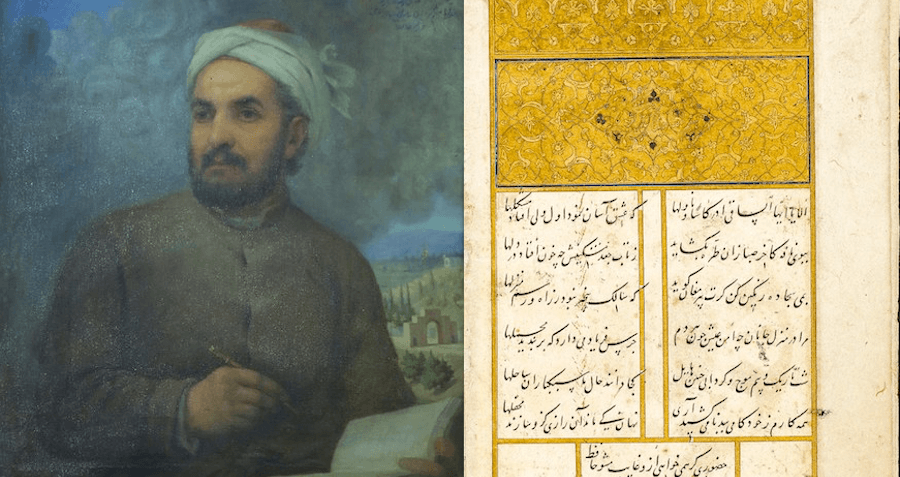 الا یا ایها الساقی ادر کاسا و ناولها که عشق آسان نمود اول ولی افتاد مشکلها
ببوی نافه کاخر صبا زان طره بگشاید ز تاب جعد مشکینش چه خون افتاد در دلها
بمی سجاده رنگین کن کرت پیر مغان کوید که سالک بیخبر نبود ز راه و رسم منزلها
مرا در منزل جانان چه امن عیش چون هر دم جرس فریاد می دارد که بربندید محملها
شب تاریک و بیم موج و کردابی چنین هایل کجا دانند حال ما سبکباران ساحلها
همه کارم ز خود کامی ببدنامی کشید آری نهان کی ماند آن رازی کزو سازند محفلها
حضوری کر همی خواهی ازو غایب مشو حافظ